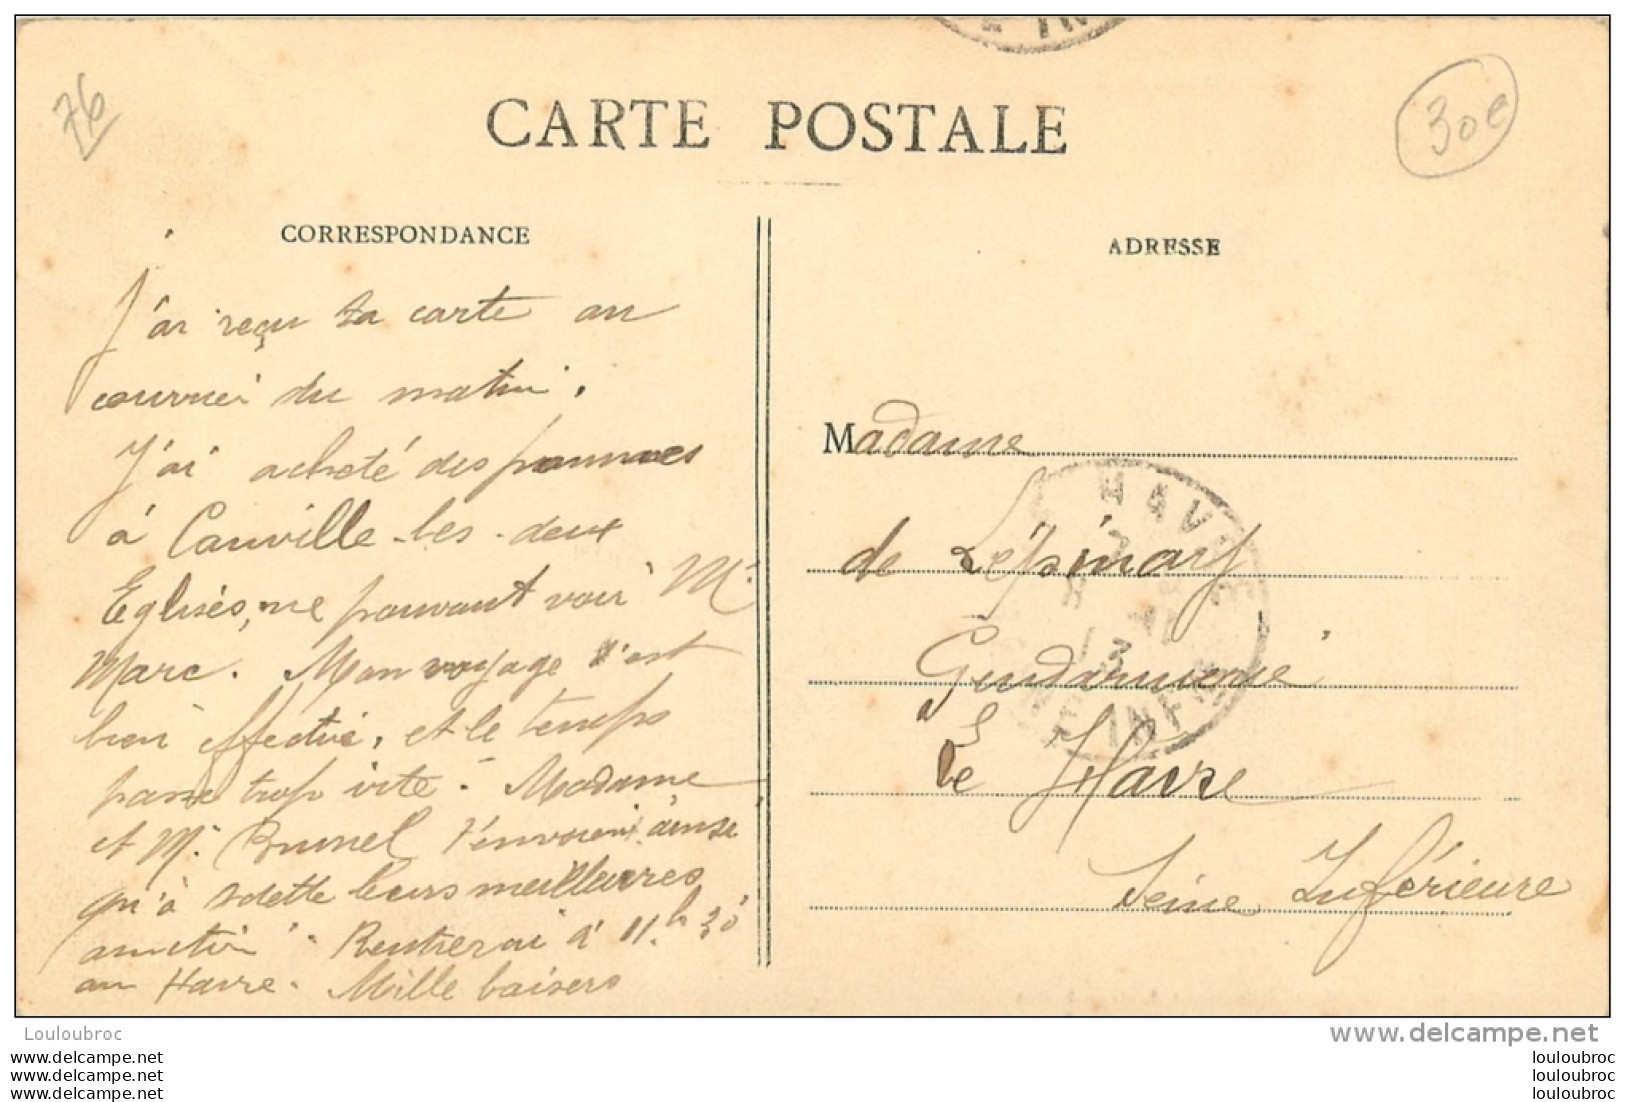 76
30e
CARTE POSTALE
CORRESPONDANCE
J'ai reçu ta carte au
courrier du matin.
J'ai acheté des pommes
à Canville-les-deux
Eglises, ne pouvant voir Mr
Marc. Mon voyage s'est
bien effectué, et le temps
passe trop vite. Madame
et Mr Brunel t'envoient ainsi
qu'à Odette leurs meilleures
amitiés. Rentrerai à 11h 30
au Havre. Mille baisers
ADRESSE
Madame
de
Gendarmerie
Le Havre
Seine Inférieure
HAVRE
INFRE
Louloubroc
delcampe.net
www.delcampe.net
www.delcampe.net
www.delcampe.net
louloubroc
louloubroc
louloubroc